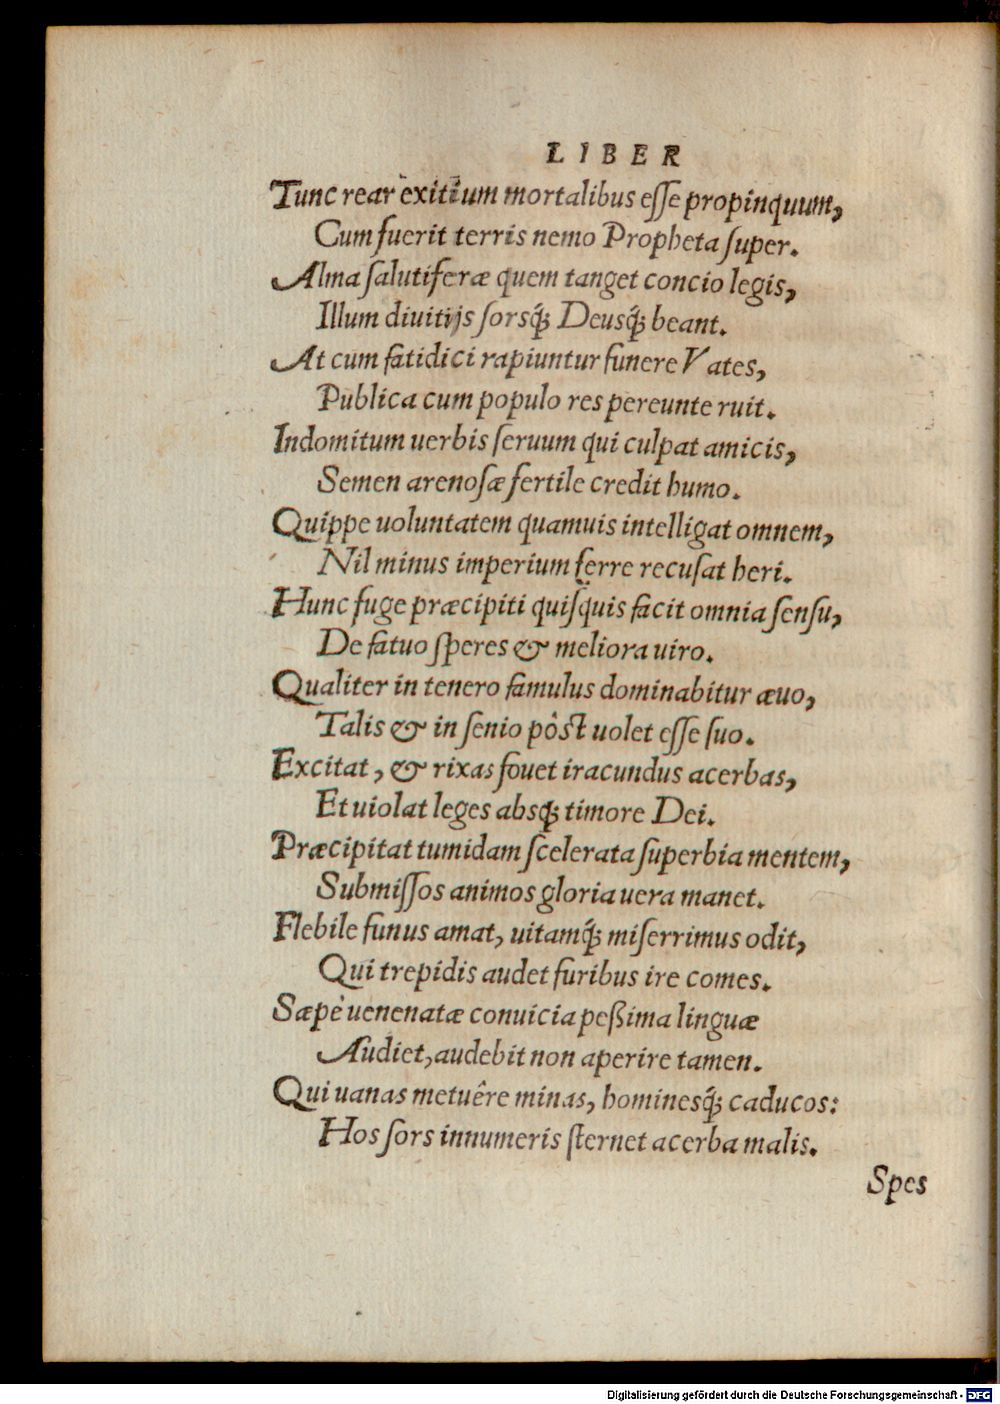 LIBER
Tunc rear exitium mortalibus eſſe propinquum,
Cum fuerit terris nemo Propheta ſuper.
Alma ſalutiferæ quem tanget concio legis,
Illum diuitijs ſorsq́ꝫ Deusq́ꝫ beant.
At cum fatidici rapiuntur funere Vates,
Publica cum populo res pereunte ruit.
Indomitum uerbis ſeruum qui culpat amicis,
Semen arenoſæ fertile credit humo.
Quippe uoluntatem quamuis intelligat omnem,
Nil minus imperium ferre recuſat heri.
Hunc fuge præcipiti quiſquis facit omnia ſenſu,
De fatuo ſperes & meliora uiro.
Qualiter in tenero famulus dominabitur æuo,
Talis & in ſenio pòſt uolet eſſe ſuo.
Excitat, & rixas fouet iracundus acerbas,
Et uiolat leges absqꝫ timore Dei.
Præcipitat tumidam ſcelerata ſuperbia mentem,
Submiſſos animos gloria uera manet.
Flebile funus amat, uitamq́ꝫ miſerrimus odit,
Qui trepidis audet furibus ire comes.
Sæpè uenenatæ conuicia peßima linguæ
Audiet, audebit non aperire tamen.
Qui uanas metuêre minas, hominesq́ꝫ caducos:
Hos ſors innumeris ſternet acerba malis.
Spes
Digitalisierung gefördert durch die Deutsche Forschungsgemeinschaft - DFG